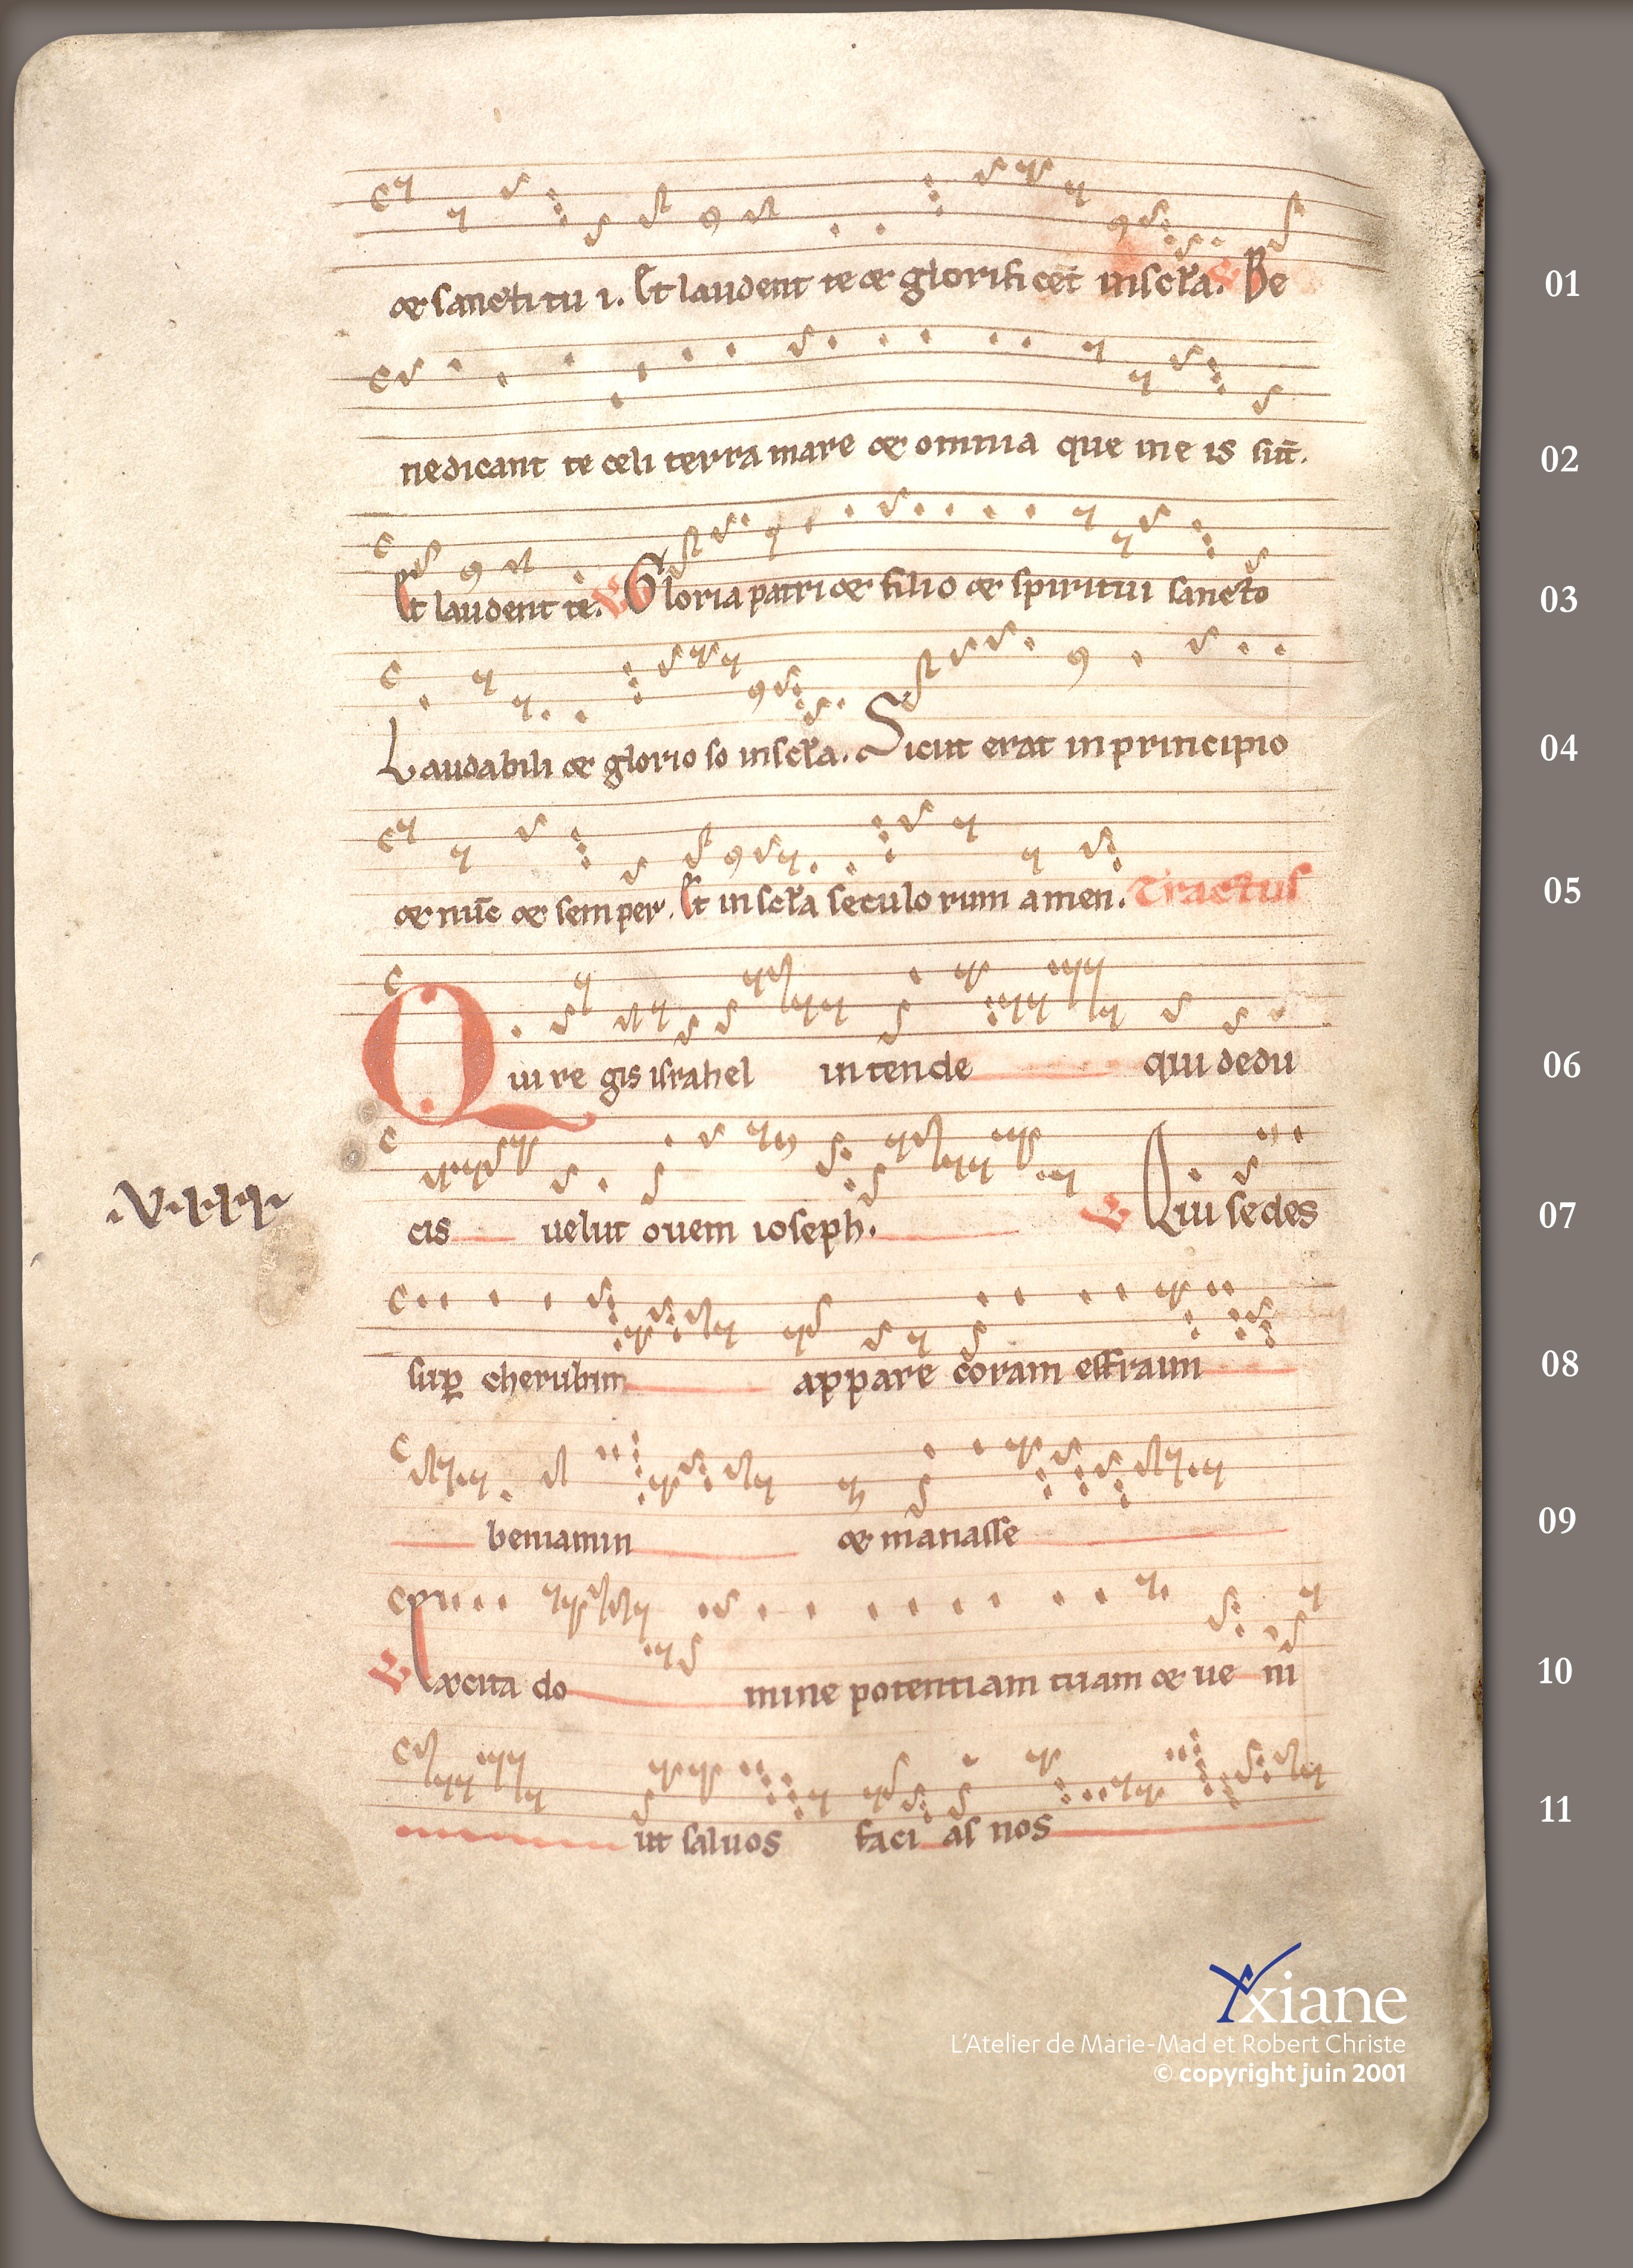 & sancti tu i. Et laudent te & glorificēt inscl̄a. Be
01
nedicant te celi terra mare & omnia que ine is sūt.
02
Et laudent te. V Gloria patri & filio & spiritui sancto
03
Laudabili & glorio so inscl̄a. Sicut erat in principio
04
& nūc & semper. Et in scl̄a seculo rum amen. Tractus
05
Qui re gis israhel intende qui dedu
06
cis uelut ouem ioseph. V Qui sedes
07
sup cherubim appare coram effraim
08
beniamin & manasse
09
V Excita do mine potentiam tuam & ue ni
10
ut saluos faci as nos
11
Yxiane
L'Atelier de Marie-Mad et Robert Christe
© copyright juin 2001